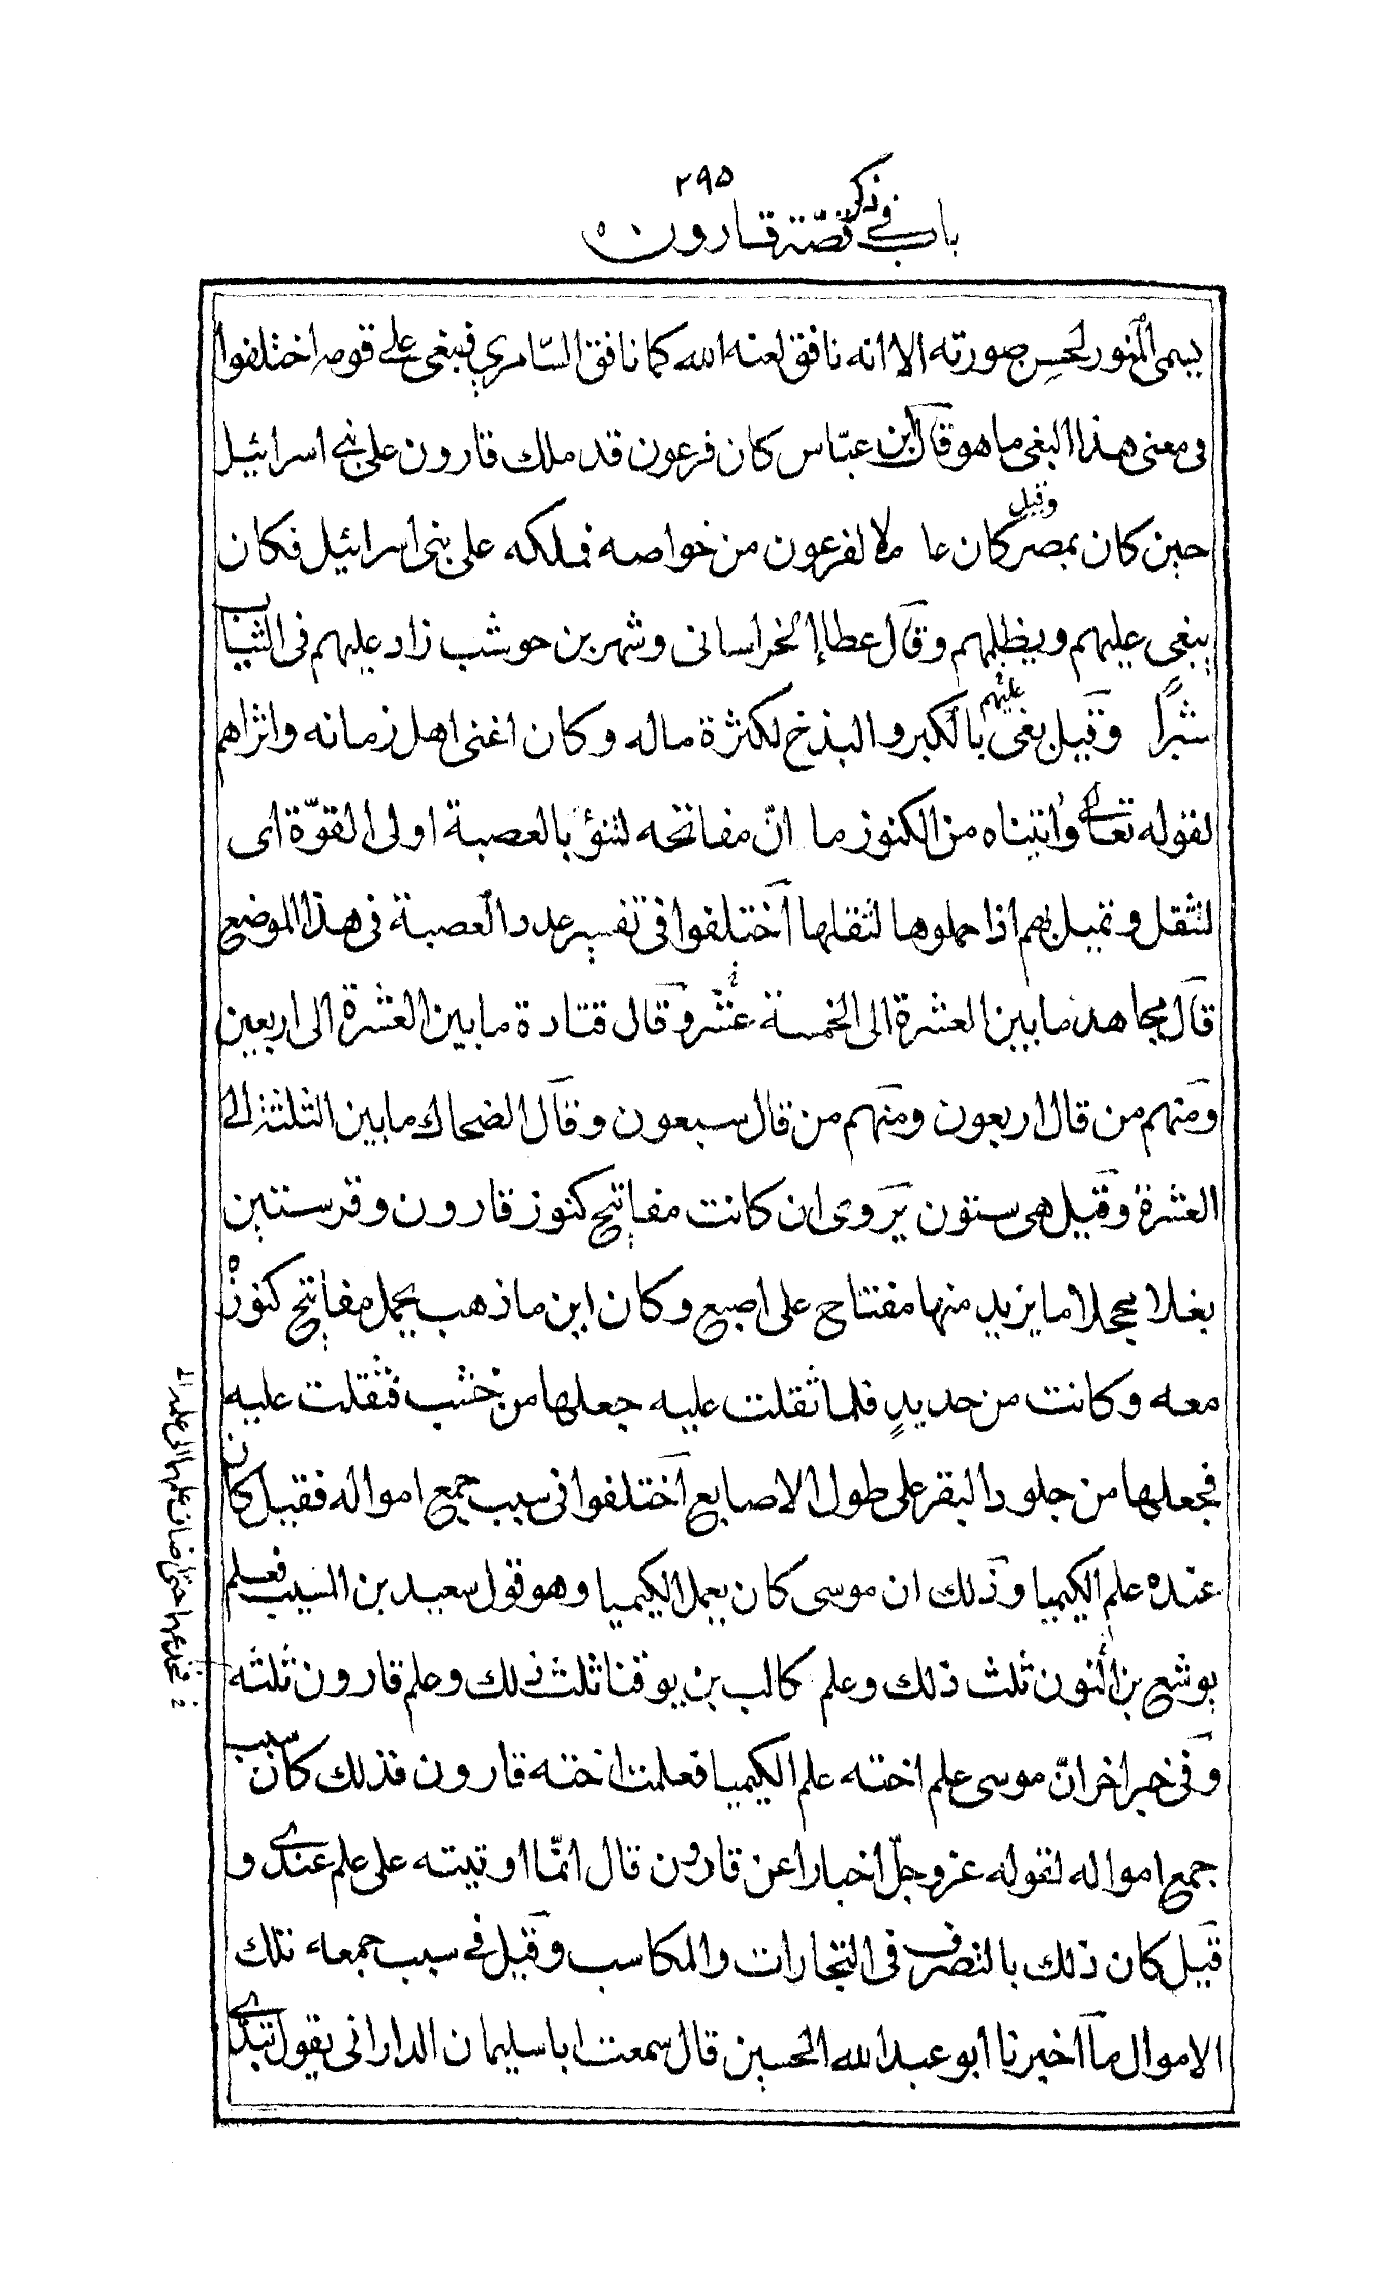 ٢٩٥
باب في ذكر قصّة قارون
يسمى المنور لحسن صورته الا انه نافق لعنه الله كما نافق السّامري فبغى على قومه اختلفوا
فى معنى هذا البغى ما هو قال ابن عبّاس كان فرعون قد ملك قارون على بنى اسرائيل
حين كان بمصر وقيل كان عا ملا لفرعون من خواصه فملكه على بنى اسرائيل فكان
يبغى عليهم ويظلمهم وقال عطاء الخراسانى وشهر بن حوشب زاد عليهم فى الثياب
شبرًا وقيل بغى عليهم بالكبر والبذخ لكثرة ماله وكان اغنى اهل زمانه واثراهم
لقوله تعالى وآتيناه من الكنوز ما انّ مفاتحه لتنؤ بالعصبة اولى القوّة اى
لتثقل وتميل بهم اذا حملوها لثقلها اختلفوا فى تفسير عدد العصبة فى هذا الموضع
قال مجاهد ما بين العشرة الى الخمسة عشر وقال قتادة ما بين العشرة الى اربعين
ومنهم من قال اربعون ومنهم من قال سبعون وقال الضحاك ما بين الثلثة الى
العشرة وقيل هى ستون يروى ان كانت مفاتيح كنوز قارون وقر ستين
بغلا محجلا ما يزيد منها مفتاح على اصبع وكان اين ما ذهب يحمل مفاتيح كنوزه
معه وكانت من حديد فلما ثقلت عليه جعلها من خشب فثقلت عليه
فجعلها من جلود البقر على طول الاصابع اختلفوا فى سبب جمع امواله فقيل كان
عنده علم الكيميا وذلك ان موسى كان يعمل الكيميا وهو قول سعيد بن المسيب فعلم
يوشع بن النون ثلث ذلك وعلم كالب بن يوقنا ثلث ذلك وعلم قارون ثلثه
وفى خبر اخر انّ موسى علم اخته علم الكيميا فعلمت اخته قارون فذلك كان سبب
جمع امواله لقوله عز وجلّ اخبارا عن قارون قال انّما اوتيته على علم عندى و
قيل كان ذلك بالتصرف فى التجارات والمكاسب وقيل في سبب جمعه تلك
الاموال ما اخبرنا ابو عبد الله الحسين قال سمعت ابا سليمان الدارانى يقول تبدى
فخدعهما حتى اضاف علمهما الى علمه